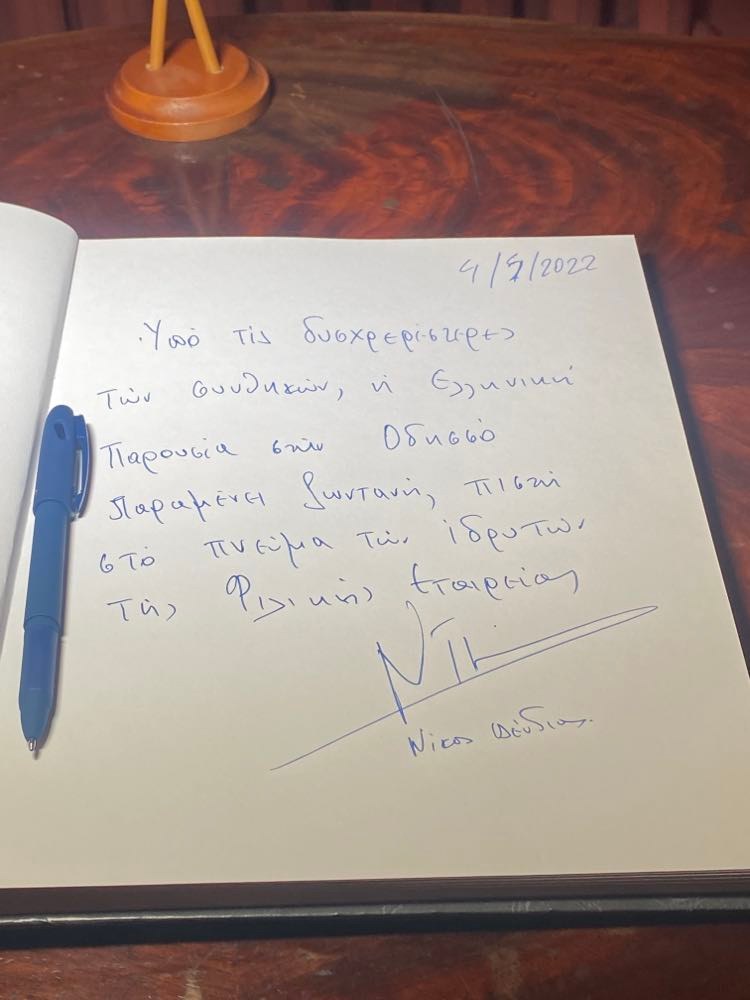 4/7/2022
Ὑπό τίς δυσχερέστερες
τῶν συνθηκῶν, ἡ Ἑλληνική
παρουσία στήν Οδησσό
παραμένει ζωντανή, πιστή
στό πνεῦμα τῶν ἱδρυτῶν
τῆς Φιλικῆς Ἑταιρείας
Νίκος Δένδιας